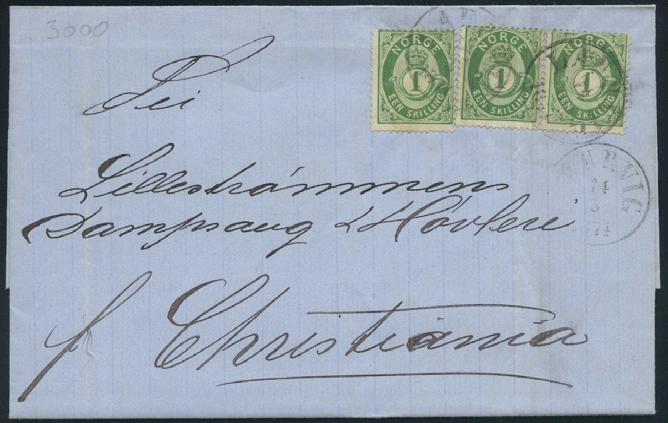 3000
NORGE 1 EEN SKILLING
NORGE 1 EEN SKILLING
NORGE 1 EEN SKILLING
Til
Lillestrømmens
Dampsaug & Høvleri
p Christiania
14